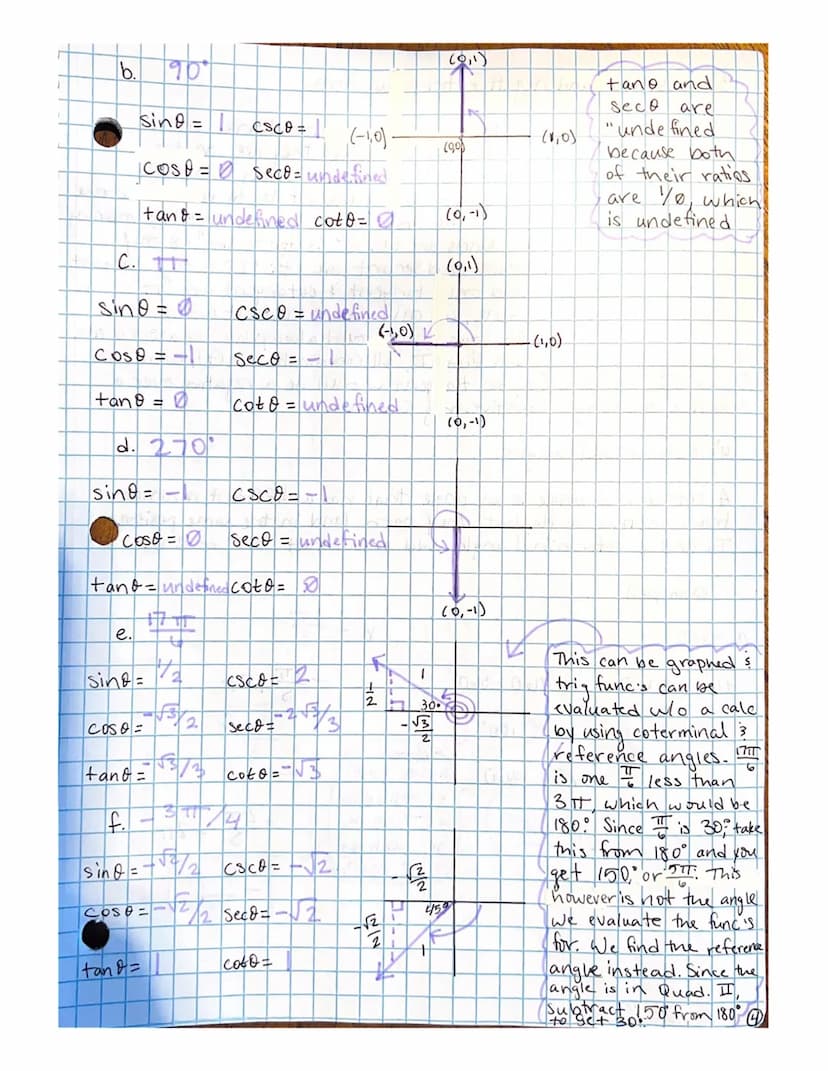 b. 90°
sinθ = 1 cscθ = 1
cosθ = 0 secθ = undefined
tanθ = undefined cotθ = 0
(0,1)
(-1,0) (0,0) (1,0)
(0,-1)
tanθ and
secθ are
"undefined
because both
of their ratios
are 1/0, which
is undefined
c. π
sinθ = 0 cscθ = undefined
cosθ = -1 secθ = -1
tanθ = 0 cotθ = undefined
(0,1)
(-1,0) (1,0)
(0,-1)
d. 270°
sinθ = -1 cscθ = -1
cosθ = 0 secθ = undefined
tanθ = undefined cotθ = 0
(0,-1)
e. 17π/
sinθ = 1/2 cscθ = 2
cosθ = -√3/2 secθ = -2√3/3
tanθ = -√3/3 cotθ = -√3
1
1/2 30°
-√3/2
This can be graphed &
trig func's can be
evaluated w/o a calc
by using coterminal &
reference angles. 17π/6
is one π/6 less than
3π, which would be
180°. Since π/6 is 30°, take
this from 180° and you
get 150°, or 5π/6. This
however is not the angle
we evaluate the func's
for. We find the reference
angle instead. Since the
angle is in Quad. II,
subtract 150° from 180°
to get 30°.
4
f. -3π/4
sinθ = -√2/2 cscθ = -√2
cosθ = -√2/2 secθ = -√2
tanθ = 1 cotθ = 1
-√2/2
45°
-√2/2
1